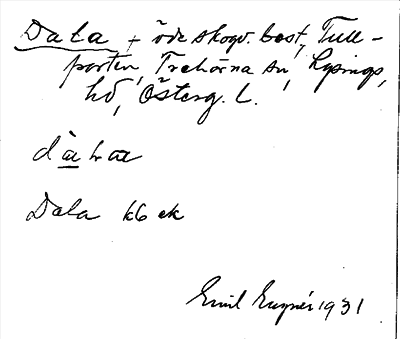 Data + öde skogv. bost, Tull-
porten, Trehörna sn, Lysings
hd, Österg. L.
dàlrar
Dala kb ek
Emil 1931